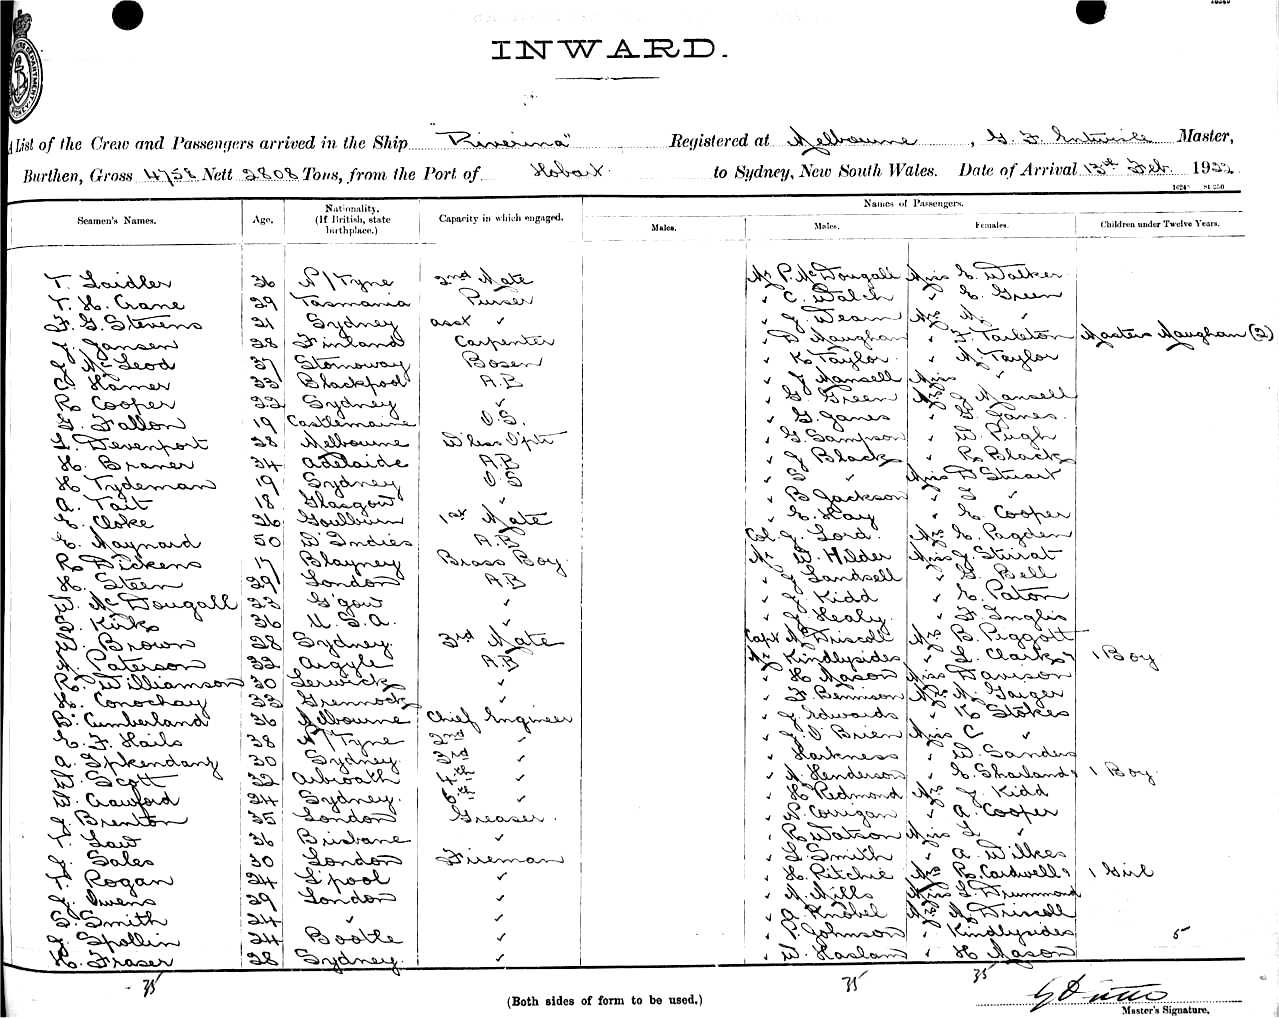 INWARD.
A List of the Crew and Passengers arrived in the Ship "Riverina" Registered at Melbourne, G. F. Master,
Burthen, Gross 4758 Nett 2808 Tons, from the Port of Hobart to Sydney, New South Wales. Date of Arrival 13th Feb. 1922
Seamen's Names. Age. Nationality. (If British, state birthplace.) Capacity in which engaged. Names of Passengers.
Males. Males. Females. Children under Twelve Years.
T. Laidler 36 N/Tyne 2nd Mate Mr P. McDougall Miss E. Walker
T. H. Crane 29 Tasmania Purser " C. Walch " E. Green
F. G. Stevens 21 Sydney asst " " J. Wearn Mrs M. "
J. Jansen 28 Finland Carpenter " D Maughan " F. Tarleton Masters Maughan (2)
J. McLeod 37 Stornoway Bosen " K Taylor " M. Taylor
C. Hamer 33 Blackpool A.B " J Mansell Miss "
R. Cooper 22 Sydney " " G. Green Mrs J Mansell
G. Fallon 19 Castlemaine O.S. " G. Janes " G Janes
L. Devenport 28 Melbourne W'less Optr " G. Sampson " W Pugh
H. Braner 34 Adelaide A.B " J Black " R. Black
H Tydeman 19 Sydney O.S " S " Miss D Stuart
A. Tait 18 Glasgow " " B Jackson " G "
E. Cloke 26 Goulburn 1st Mate " E. Hay " E Cooper
E. Maynard 50 W Indies A.B Col J. Lord Mrs E. Pagden
R Dickens 17 Blayney Brass Boy Mr W. Hilder Miss J. Sturat
H. Steen 29 London A.B " J Landsell " G Bell
W. McDougall 23 G'gow " " J Kidd " E. Paton
S. Kirks 36 U.S.A. " " J Healy " F Inglis
W. Brown 28 Sydney 3rd Mate Capt M. Driscoll Mrs B. Piggott
A. Paterson 32 Argyle A.B Mr Kindlysides " L. Clark & 1 Boy
R. Williamson 30 Lerwick " " H Mason Miss Davison
H. Conochay 33 Greenock " " F Bennison Mrs M. Gaiger
B. Cumberland 36 Melbourne Chief Engineer " J Edwards " K Stokes
E. F. Hails 38 N/Tyne 2nd " " J. O'Brien Miss C "
A. Spkendang 30 Sydney 3rd " " Harkness " W. Sanders
W. Scott 32 Arbroath 4th " " A. Henderson " E. Sharland & 1 Boy
W. Crawford 24 Sydney. 6th " " H Redmond Mrs J. Kidd
J Brenton 35 London Greaser " P. Corrigan " A. Cooper
T. Law 36 Brisbane " " R Watson Miss L "
J. Sales 30 London Fireman " L. Smith " A Wilkes
T. Rogan 24 L'pool " " H. Ritchie Mrs R. Cardwell & 1 Girl
J. Owens 29 London " " M. Mills Miss L. Drummond
S. Smith 24 " " " A. Knobel Mrs M. Driscoll
J. Spollin 24 Bootle " " P. Johnson " Kindlysides 5
H. Fraser 28 Sydney. " " W. Haslam " H Mason
35 35 35
(Both sides of form to be used.)
Master's Signature.